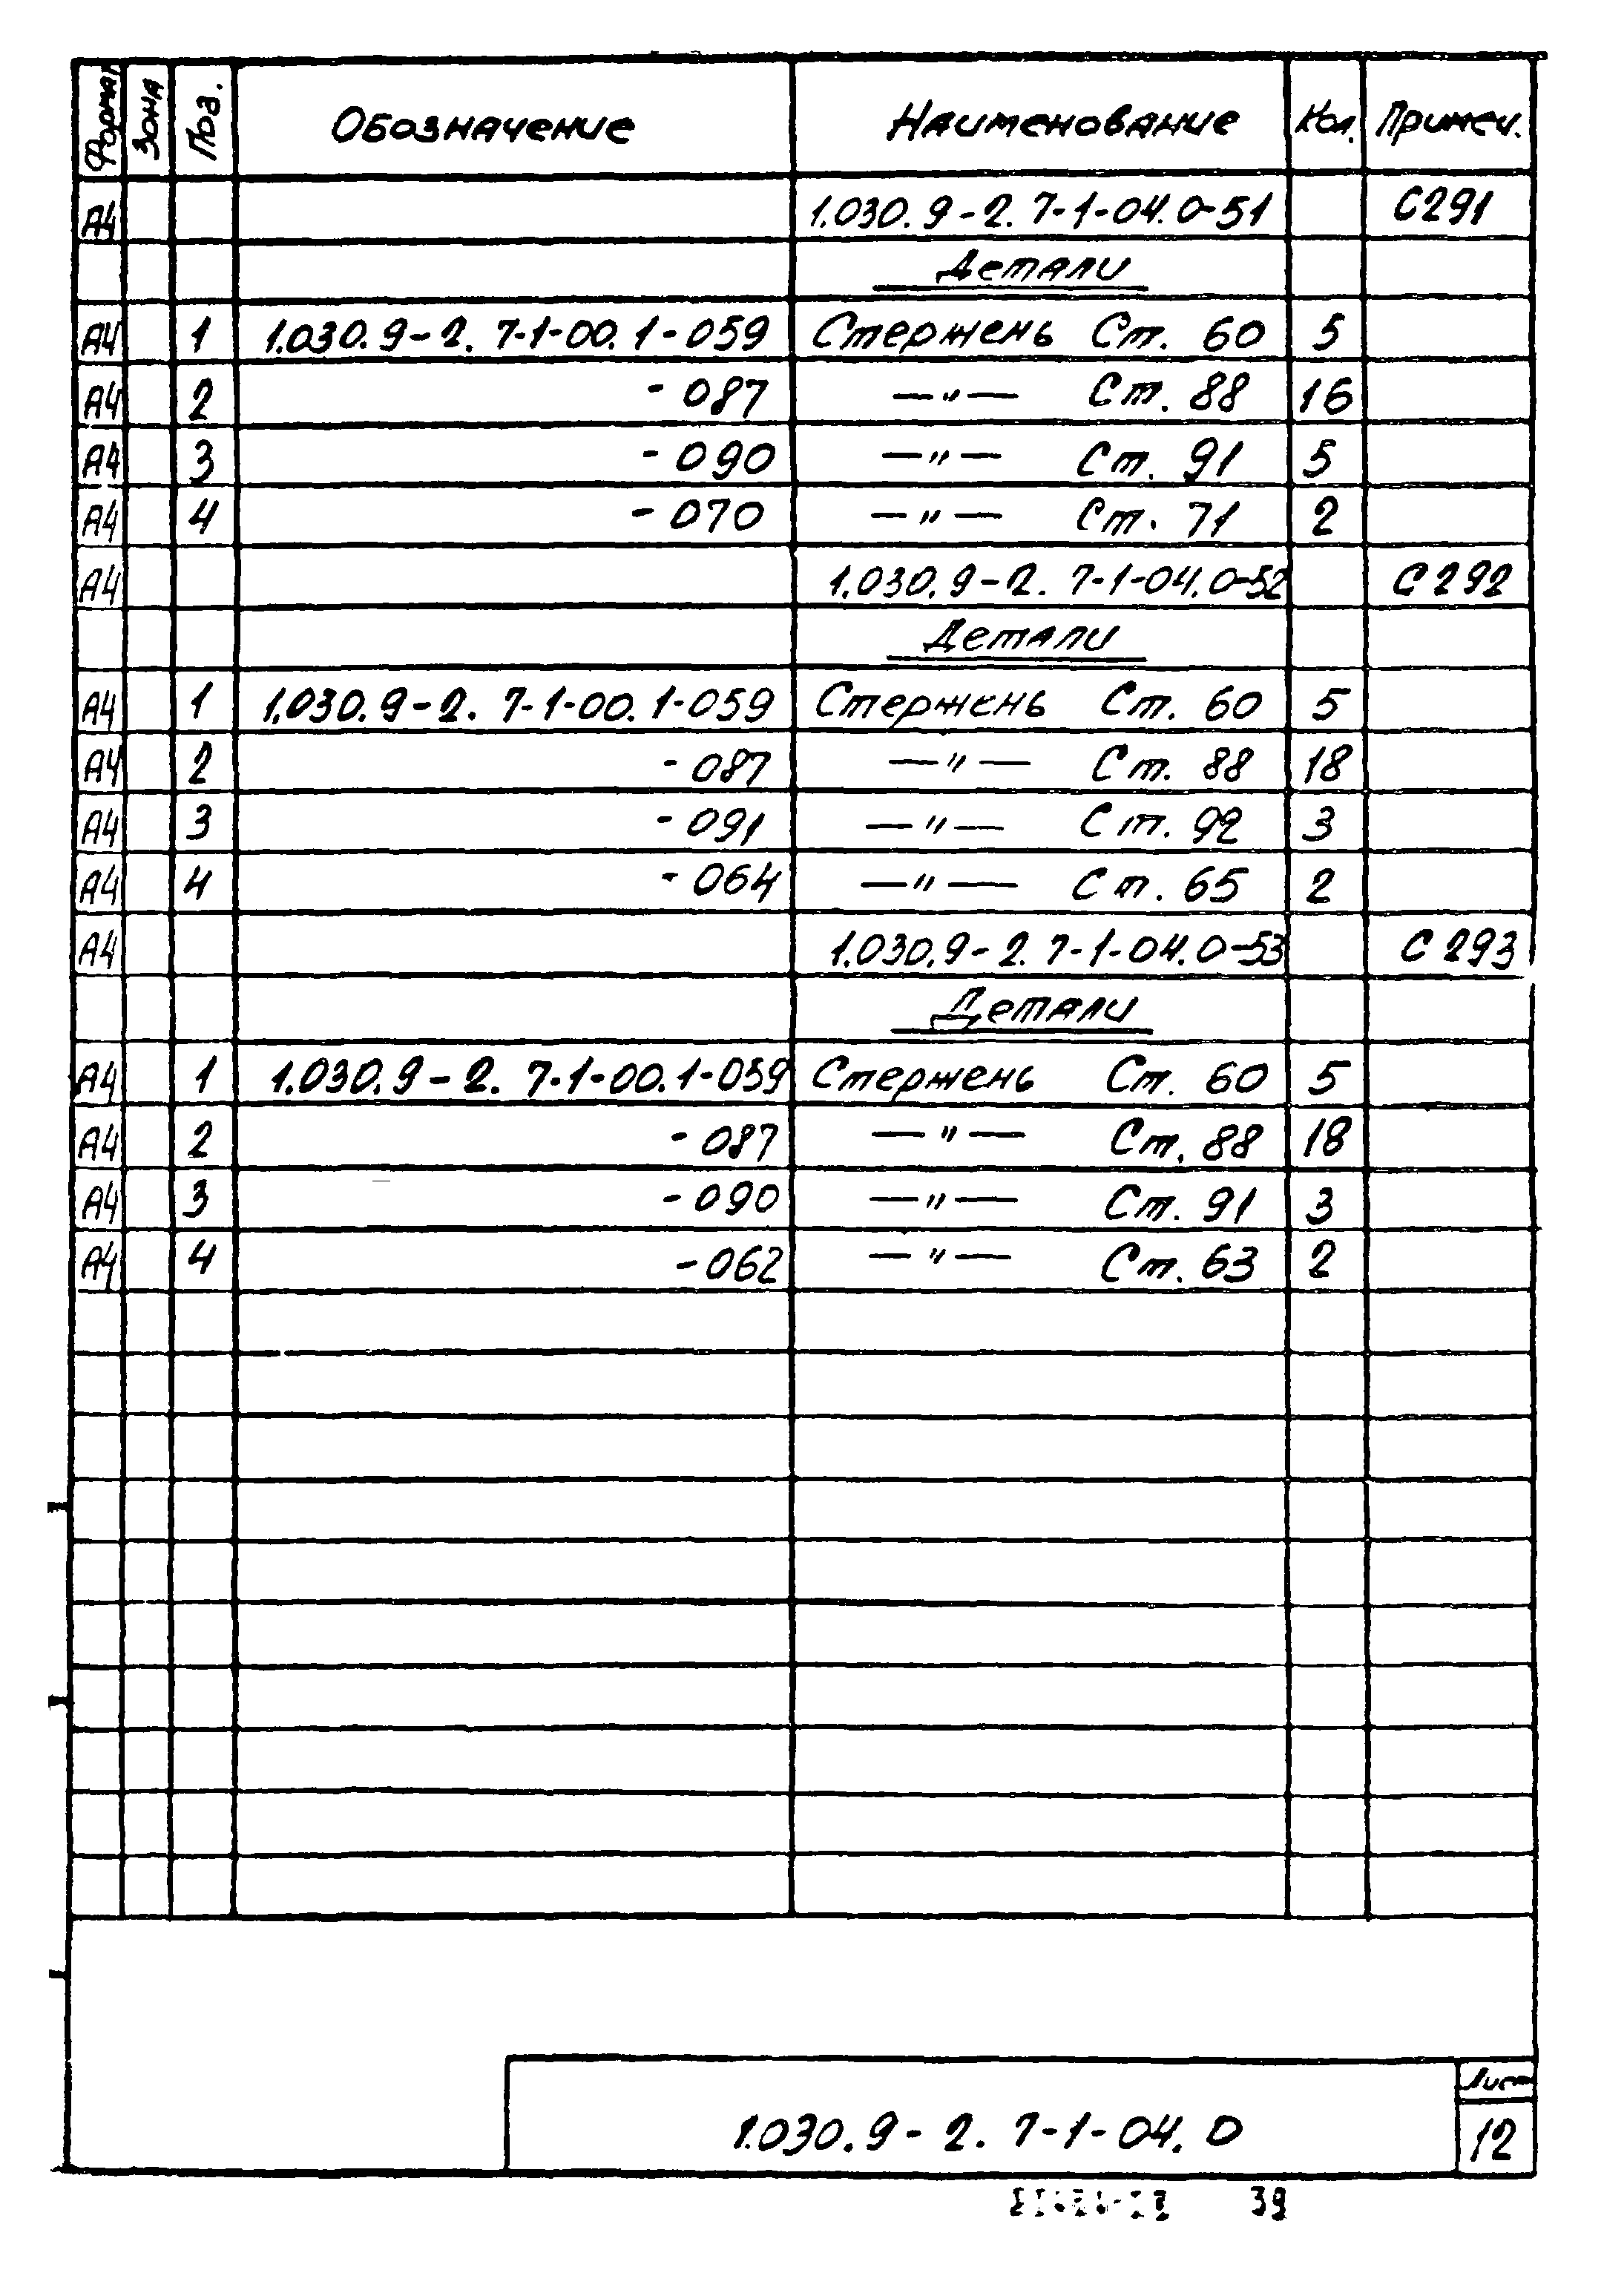 Формат Зона Поз. Обозначение Наименование Кол. Примеч.
А4 1.030.9-2.7-1-04.0-51 С291
Детали
А4 1 1.030.9-2.7-1-00.1-059 Стержень Ст. 60 5
А4 2 -087 —"— Ст. 88 16
А4 3 -090 —"— Ст. 91 5
А4 4 -070 —"— Ст. 71 2
А4 1.030.9-2.7-1-04.0-52 С292
Детали
А4 1 1.030.9-2.7-1-00.1-059 Стержень Ст. 60 5
А4 2 -087 —"— Ст. 88 18
А4 3 -091 —"— Ст. 92 3
А4 4 -064 —"— Ст. 65 2
А4 1.030.9-2.7-1-04.0-53 С293
Детали
А4 1 1.030.9-2.7-1-00.1-059 Стержень Ст. 60 5
А4 2 -087 —"— Ст. 88 18
А4 3 -090 —"— Ст. 91 3
А4 4 -062 —"— Ст. 63 2
Лист
1.030.9-2.7-1-04.0 12
39